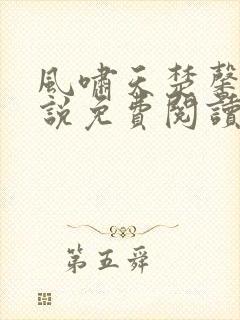 風嘯天楚馨
說免費閱讀
第五舜